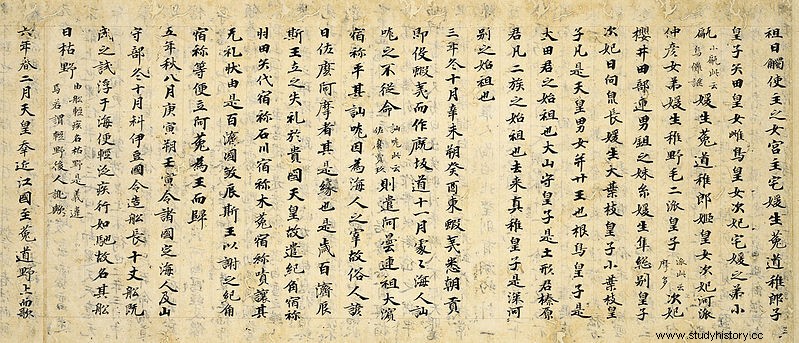 祖日觸使主之女宮主宅媛生菟道稚郎子
皇子矢田皇女雌鳥皇女次妃宅媛之弟小
甂小甂此云烏儺謎媛生菟道稚郎姬皇女次妃河派
仲彦女弟媛生稚野毛二派皇子派此云摩多次妃
櫻井田部連男鉏之妹糸媛生隼総別皇子
次妃日向泉長媛生大葉枝皇子小葉枝皇
子凡是天皇男女并廿王也根鳥皇子是
大田君之始祖也大山守皇子是土形君榛原
君凡二族之始祖也去來真稚皇子是深河
別之始祖也
三年冬十月辛未朔癸酉東蝦夷悉朝貢
即役蝦夷而作厩坂道十一月處々海人訕
哤之不從命訕哤此云佐麼賣玖則遣阿曇連祖大濱
宿祢平其訕哤因為海人之宰故俗人諺
曰佐麼阿摩者其是緣也是歲百濟辰
斯王立之失礼於貴國天皇故遣紀角宿祢
羽田矢代宿祢石川宿祢木菟宿祢嘖讓其
无礼狀由是百濟國敦辰斯王以謝之紀角
宿祢等便立阿菟為王而歸
五年秋八月庚寅朔壬寅令諸國定海人及山
守部冬十月科伊豆國令造舩長十丈舩既
成之試浮于海便輕泛疾行如馳故名其舩
曰枯野由舩輕疾名枯野是義違焉若謂輕野後人訛歟
六年春二月天皇幸近江國至菟道野上而歌
www.studyhistory.cc